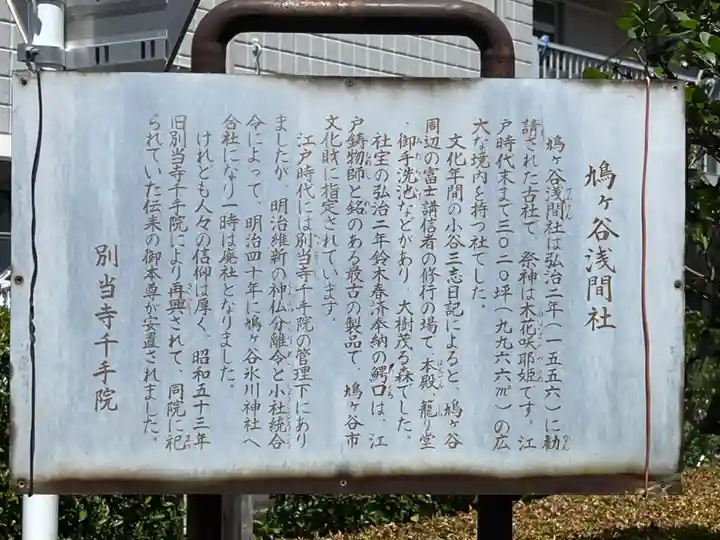 鳩ヶ谷浅間社
鳩ヶ谷浅間社は弘治二年(一五五六)に勧
請された古社で、祭神は木花咲耶姫です。江
戸時代末まで三〇二〇坪(九九六六㎡)の広
大な境内を持つ社でした。
文化年間の小谷三志日記によると、鳩ヶ谷
周辺の富士講信者の修行の場で、本殿、籠り堂
、御手洗池などがあり、大樹茂る森でした。
社宝の弘治二年鈴木春済奉納の鰐口は、江
戸鋳物師と銘のある最古の製品で、鳩ヶ谷市
文化財に指定されています。
江戸時代には別当寺千手院の管理下にあり
ましたが、明治維新の神仏分離令と小社統合
令によって、明治四十年に鳩ヶ谷氷川神社へ
合社になり一時は廃社となりました。
けれども人々の信仰は厚く、昭和五十三年
旧別当寺千手院により再興されて、同院に祀
られていた伝来の御本尊が安置されました。
別当寺千手院